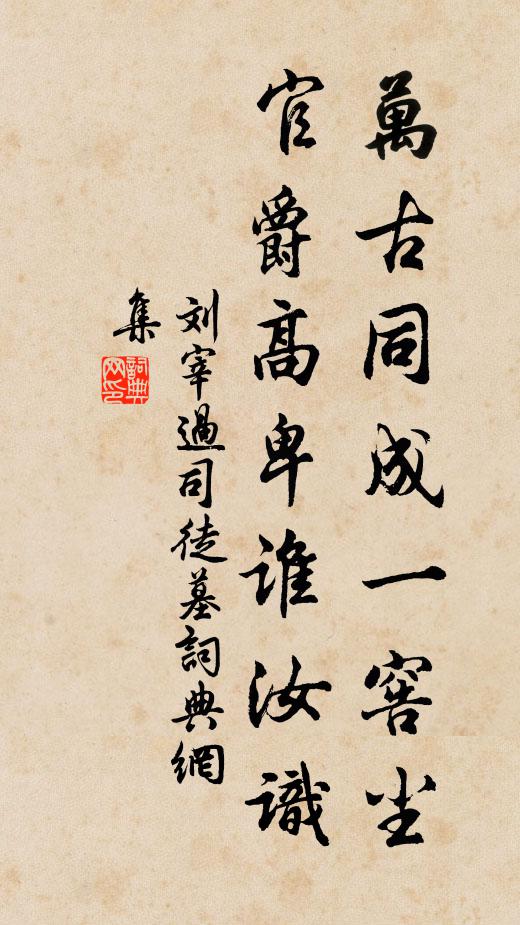 萬古同成一窖尘
官爵高卑誰汝識
刘宰過司徒墓詞典網
集
詞典网印